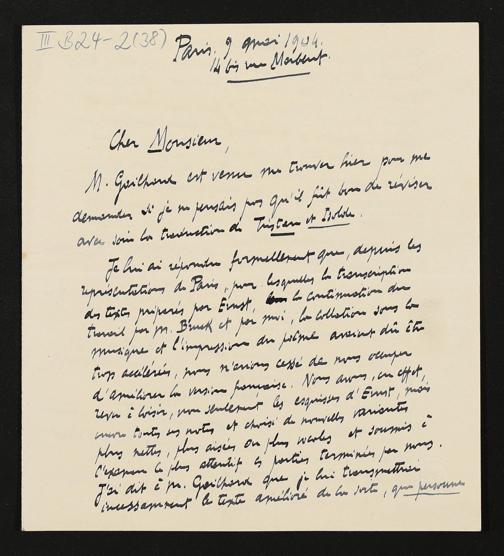 III B24-2(38)
Paris, 9 mai 1904.
14 bis rue Marbeuf.
Cher Monsieur,
M. Gailhard est venu me trouver hier pour me
demander si je ne pensais pas qu'il fût bon de réviser
avec soin la traduction de Tristan et Isolde.
Je lui ai répondu formellement que, depuis les
représentations de Paris, pour lesquelles la transcription
des textes préparés par Ernst, la continuation du
travail par M. Bruck et par moi, la collation sous la
musique et l'impression du poème avaient dû être
trop accélérées, nous n'avions cessé de nous occuper
d'améliorer la version française. Nous avons, en effet,
revu à loisir, non seulement les esquisses d'Ernst, mais
encore toutes ses notes et choisi de nouvelles variantes
plus nettes, plus aisées ou plus vocales et soumis à
l'examen le plus attentif les parties terminées par nous.
J'ai dit à M. Gailhard que je lui transmettrai
incessamment le texte amélioré de la sorte, que personne